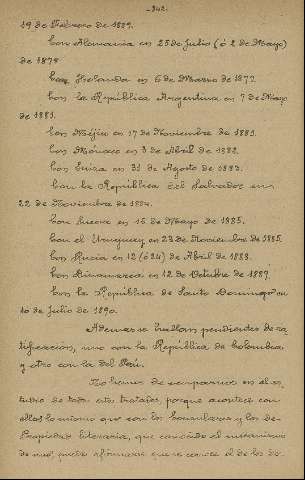 -342-
19 de Febrero de 1889.
Con Alemania en 25 de Julio (ó 2 de Mayo)
de 1878
Con Holanda en 6 de Marzo de 1877.
Con la República Argentina en 7 de Mayo
de 1881.
Con Méjico en 17 de Noviembre de 1881.
Con Mónaco en 3 de Abril de 1882.
Con Suiza en 31 de Agosto de 1883.
Con la República del Salvador en
22 de Noviembre de 1884.
Con Suecia en 15 de Mayo de 1885.
Con el Uruguay en 23 de Noviembre de 1885.
Con Rucia en 12 (ó 24) de Abril de 1888.
Con Dinamarca en 12 de Octubre de 1889.
Con la República de Santo Domingo en
10 de Julio de 1890.
Ademas se hallan pendientes de ra-
tificación, uno con la República de Colombia,
y otro con la del Perú.
No hemos de ocuparnos en el es-
tudio de todos estos tratados, porque acontece con
ellos lo mismo que con los consulares y los de
Propiedad literaria, que conocido el mecanismo
de uno, puede afirmarse que se conoce el de los de-